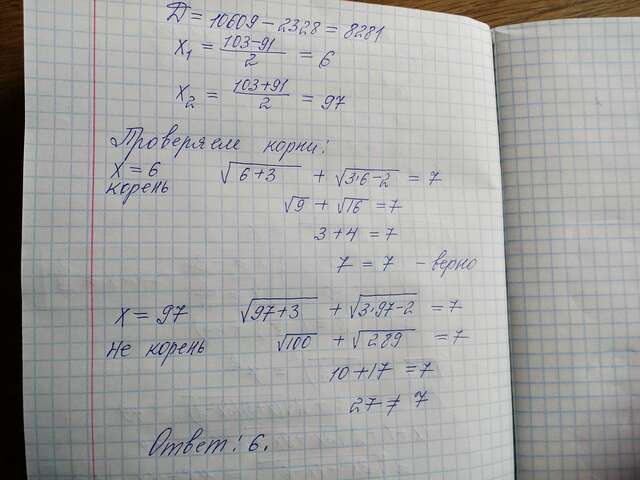 Д = 10609 - 2328 = 8281
X₁ = (103-91)/2 = 6
X₂ = (103+91)/2 = 97
Проверяем корни:
X = 6 √(6+3) + √(3·6-2) = 7
корень √9 + √16 = 7
3 + 4 = 7
7 = 7 - верно
X = 97 √(97+3) + √(3·97-2) = 7
не корень √100 + √289 = 7
10 + 17 = 7
27 ≠ 7
Ответ: 6.